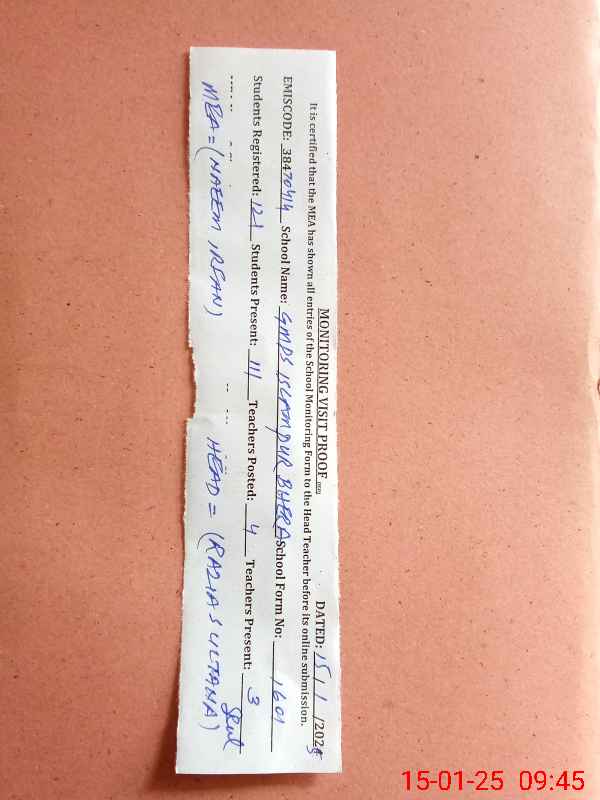 MONITORING VISIT PROOF DATED: 15/1/2025
It is certified that the MEA has shown all entries of the School Monitoring Form to the Head Teacher before its online submission.
EMISCODE: 38470414 School Name: GMPS ISLAMPUR BHERA School Form No: 1601
Students Registered: 121 Students Present: 111 Teachers Posted: 4 Teachers Present: 3
MEA = (NAEEM IRFAN) HEAD = (RAZIA SULTANA)
15-01-25 09:45